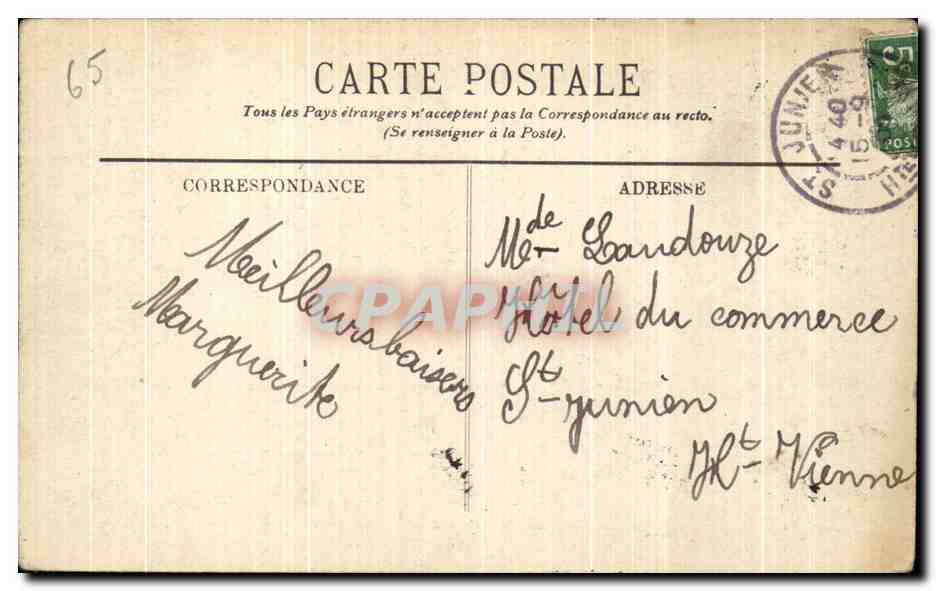 65
CARTE POSTALE
Tous les Pays étrangers n'acceptent pas la Correspondance au recto.
(Se renseigner à la Poste).
CORRESPONDANCE
ADRESSE
Meilleurs baisers
Marguerite
Mde Landouze
Hotel du commerce
St Junien
Ht Vienne
ST JUNIEN
14 40
15 -9
HTE
5
POST
CPAPHIL